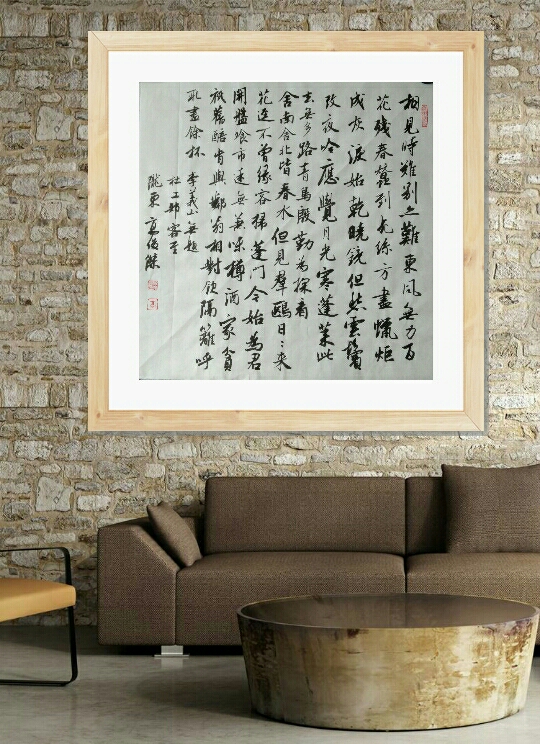 相見時難別亦難東風無力百
花殘春蠶到死絲方盡蠟炬
成灰淚始乾曉鏡但愁雲鬢
改夜吟應覺月光寒蓬萊此
去無多路青鳥殷勤為探看
舍南舍北皆春水但見羣鷗日:來
花逕不曾緣客掃蓬門今始為君
開盤飧市遠無兼味樽酒家貧
秖舊醅肯與鄰翁相對飲隔籬呼
取盡餘杯 李義山無題
杜工部客至
隴東